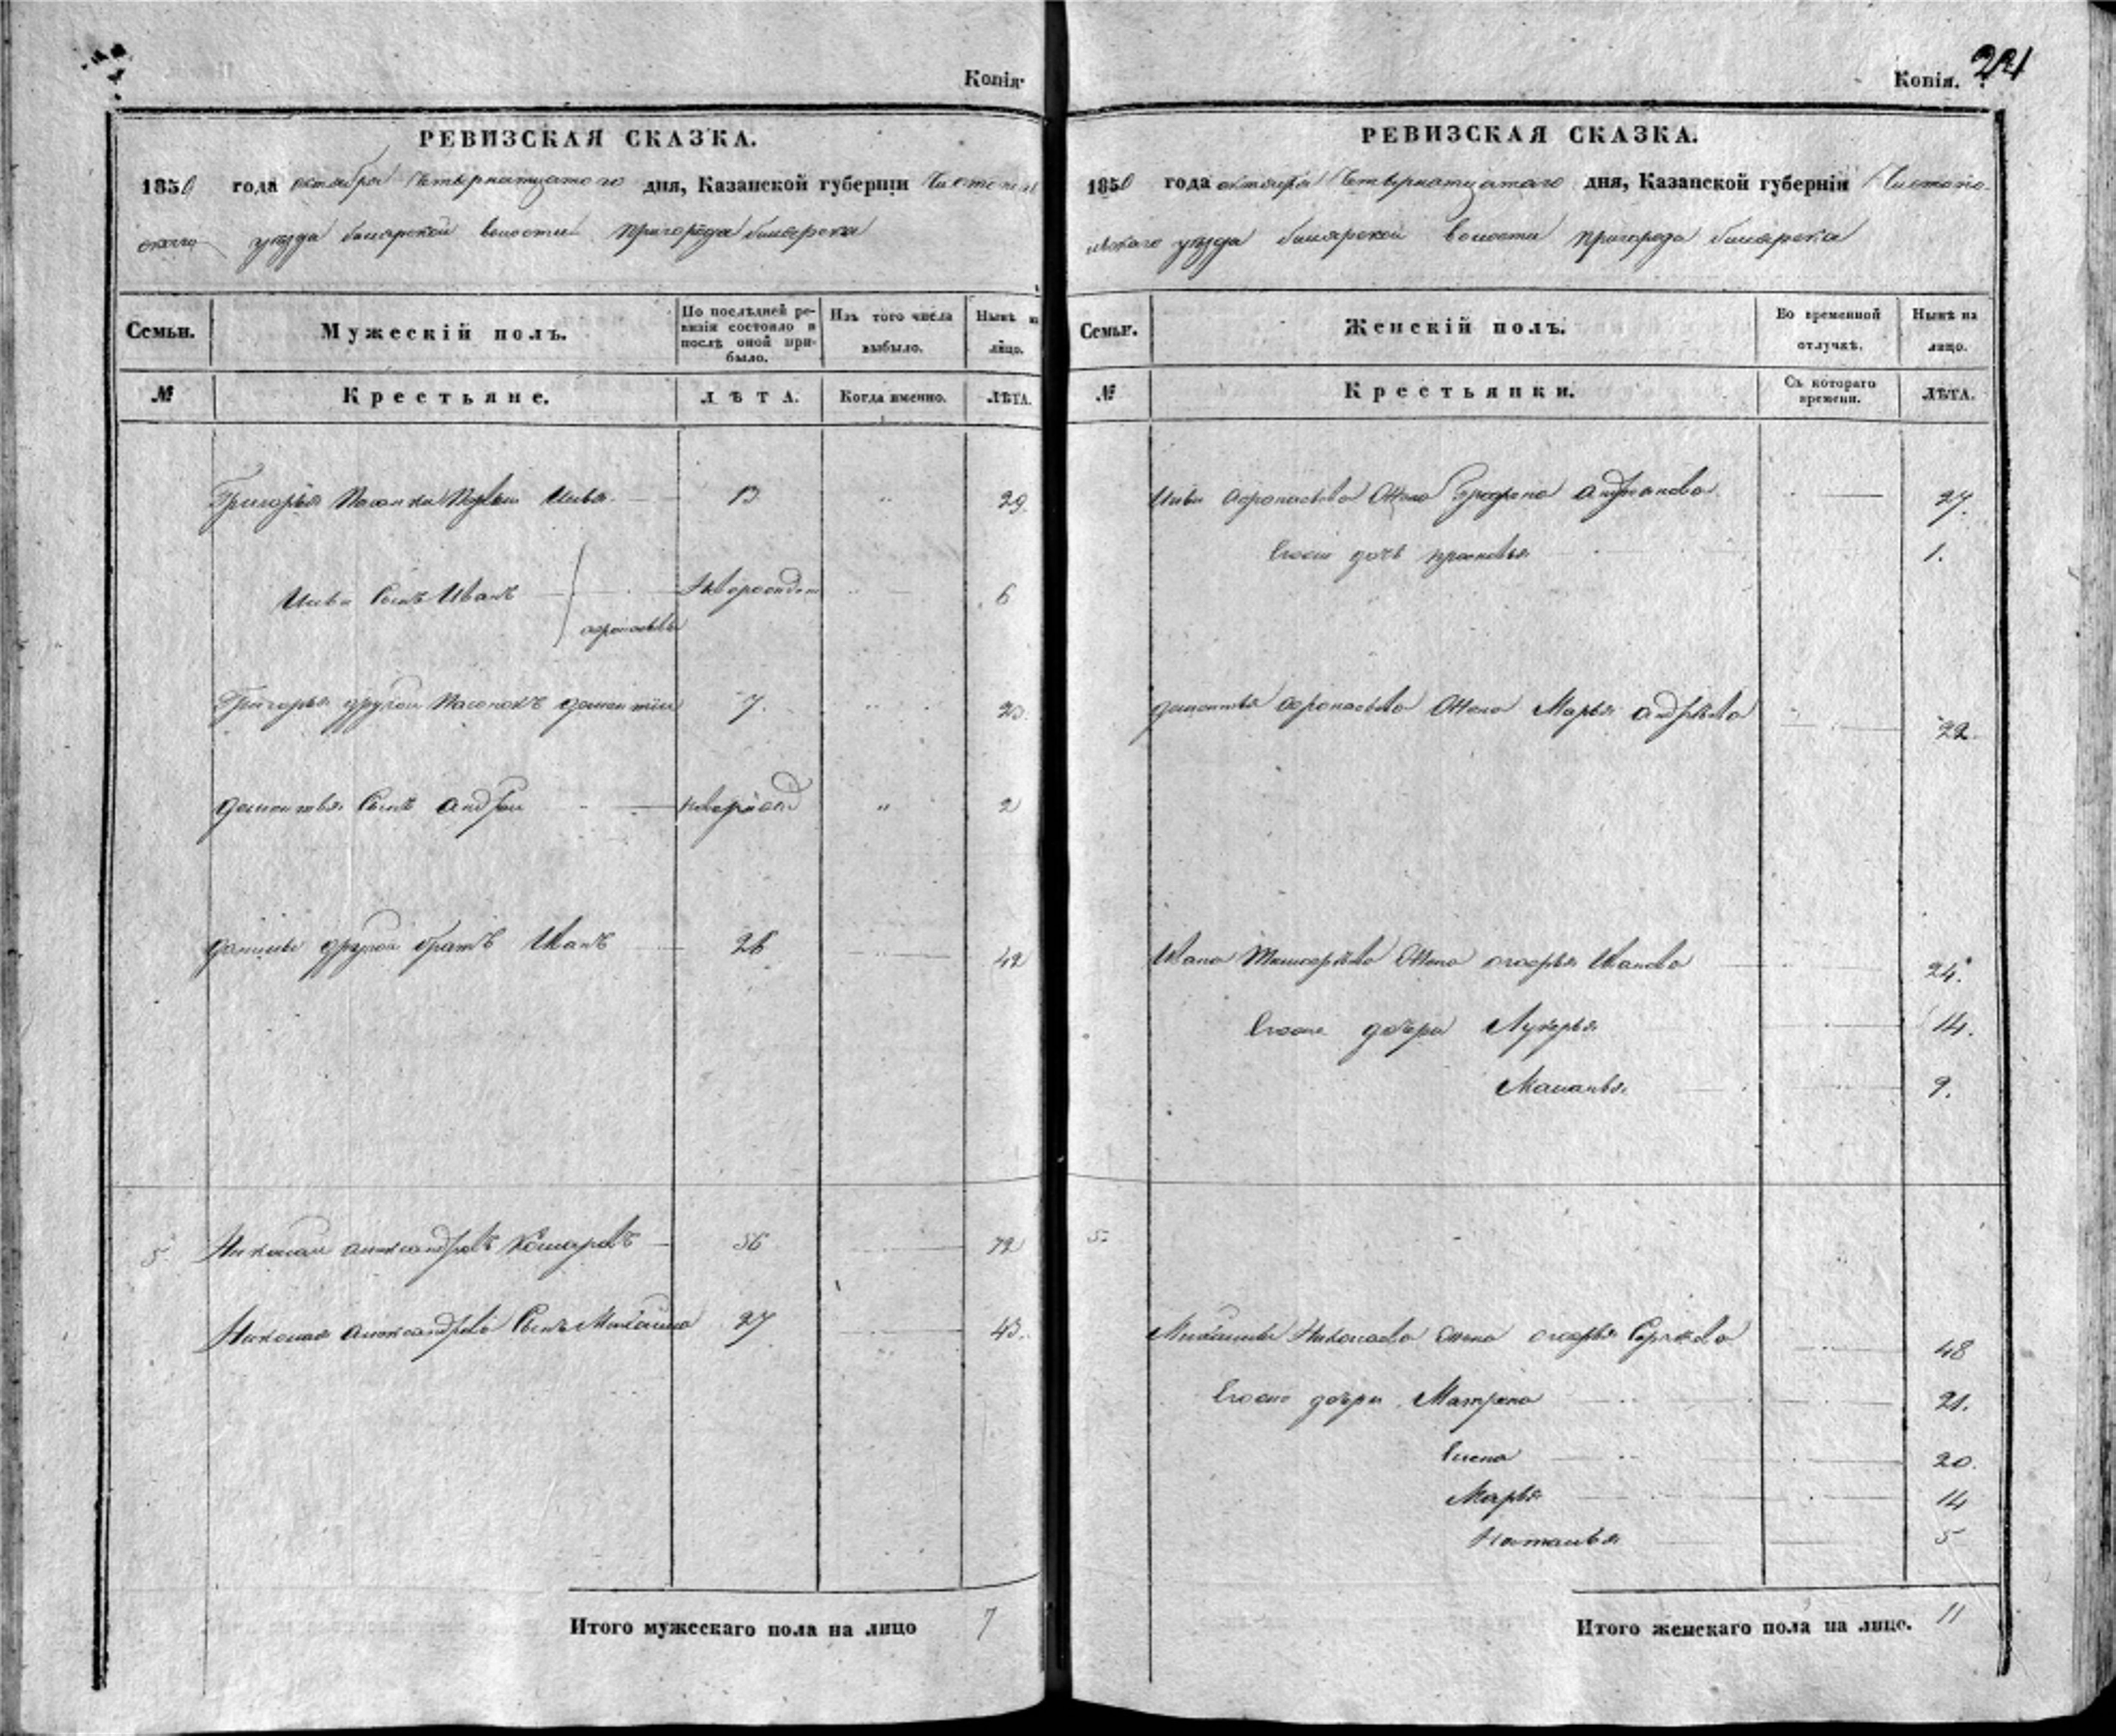 Копія.
РЕВИЗСКАЯ СКАЗКА.
1850 года октября четырнатцатого дня, Казанской губерніи Чистополь
скаго уезда билярской волости пригорода билярска
Семьи. Мужескій полъ. По послѣдней ревизіи состояло и послѣ оной прибыло. Изъ того числа выбыло. Нынѣ на лицо.
№ Крестьяне. ЛѢТА. Когда именно. ЛѢТА.
Григорья Пасынки Первый 13 29
сынъ Иванъ новорожден 6
Григорья другой Пасынокъ дементий 7. 23.
дементья Сынъ андрей новорожд " 2
другой братъ Иванъ 26 42
5. Николай александровъ 56 72
Николая александрова Сынъ Михайла 27 43.
Итого мужескаго пола на лицо 7
Копія. 221
РЕВИЗСКАЯ СКАЗКА.
1850 года октября четырнатцатаго дня, Казанской губерніи Чистопо-
льскаго уезда билярской волости пригорода билярска
Семьи. Женскій полъ. Во временной отлучкѣ. Нынѣ на лицо.
№ Крестьянки. Съ котораго времени. ЛѢТА.
афонасьева жена 27.
дочь прасковья 1.
дементья афонасьева жена Марья андреева 22.
Ивана жена Иванова 24.
дочери Лукерья 14.
Маланья 9.
5.
Михайлы Николаева жена 48
дочери Матрена 21.
Елена 20.
Марья 14
Наталья 5
Итого женскаго пола на лицо. 11